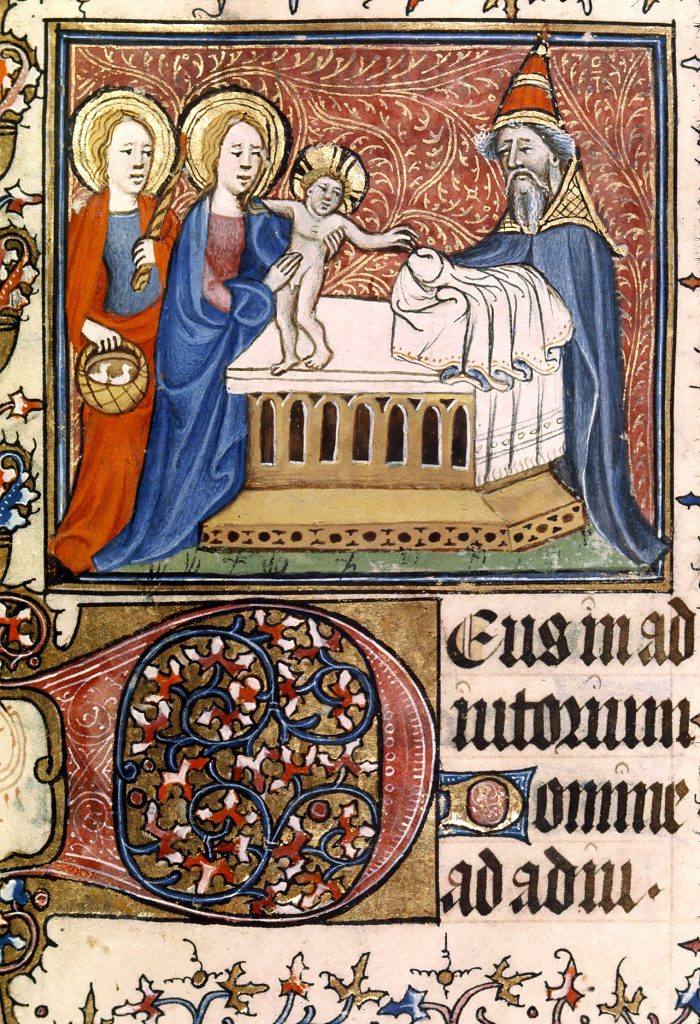 Deus in ad
iutorium
Domine
ad adiu.